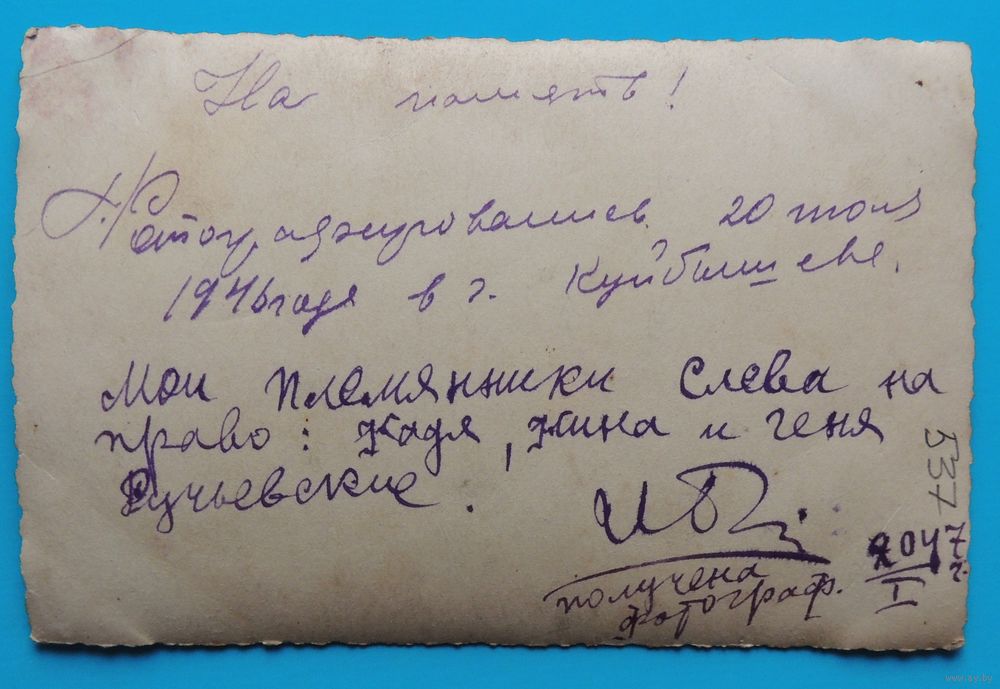 На память!
Фотографировались 20 июля
1946 года в г. Куйбышеве.
Мои племянники слева на
право: Надя, Нина и Геня
Ручьевские.
получена
фотограф.
47 г.
I
537
www.ay.by